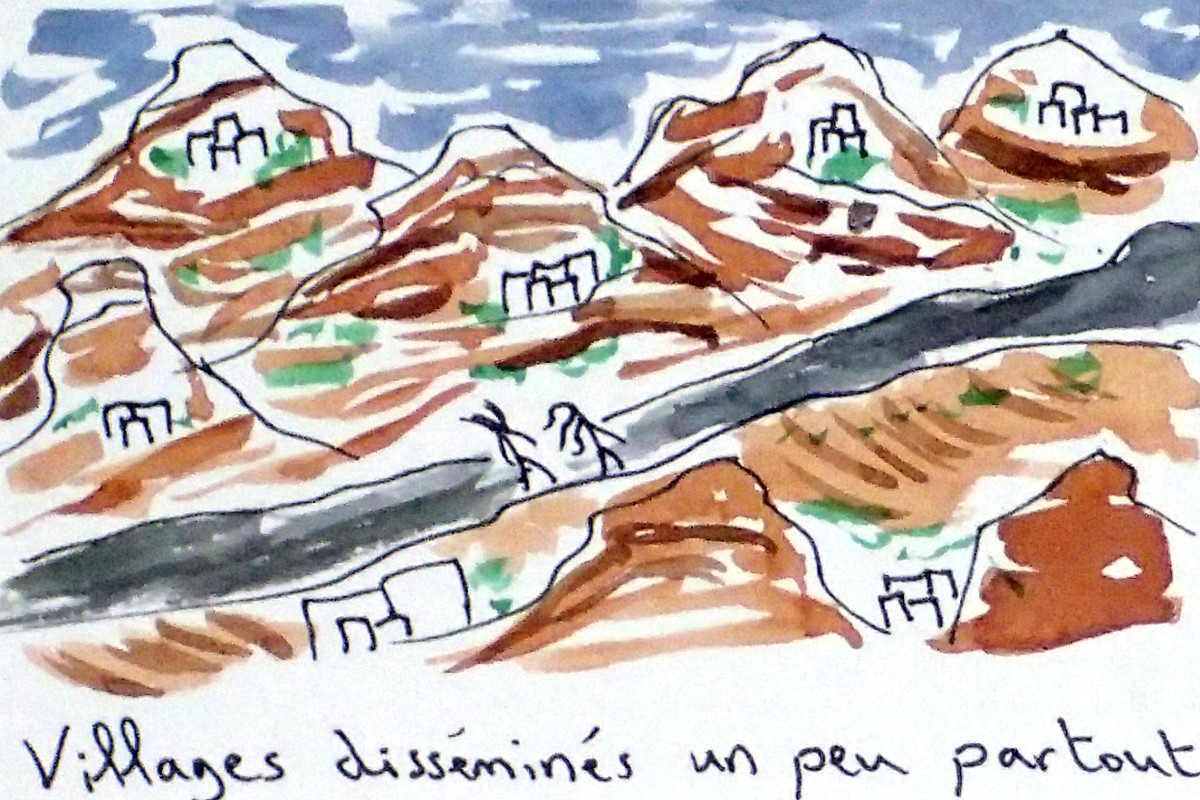 Villages disséminés un peu partout